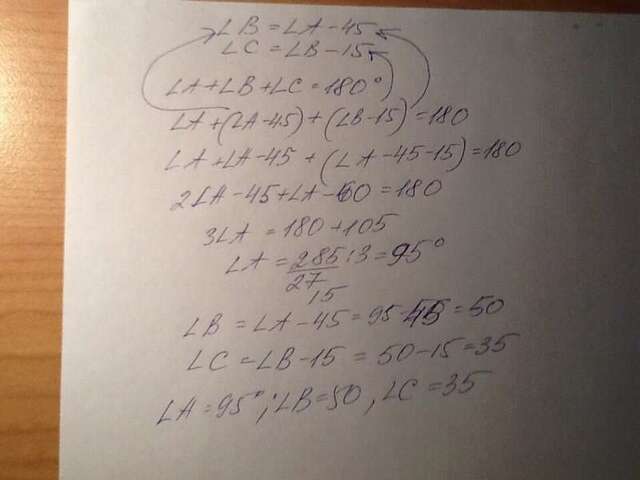 ∠B = ∠A - 45
∠C = ∠B - 15
∠A + ∠B + ∠C = 180°
∠A + (∠A - 45) + (∠B - 15) = 180
∠A + ∠A - 45 + (∠A - 45 - 15) = 180
2∠A - 45 + ∠A - 60 = 180
3∠A = 180 + 105
∠A = 285 : 3 = 95°
27
15
∠B = ∠A - 45 = 95 - 45 = 50
∠C = ∠B - 15 = 50 - 15 = 35
∠A = 95°; ∠B = 50, ∠C = 35